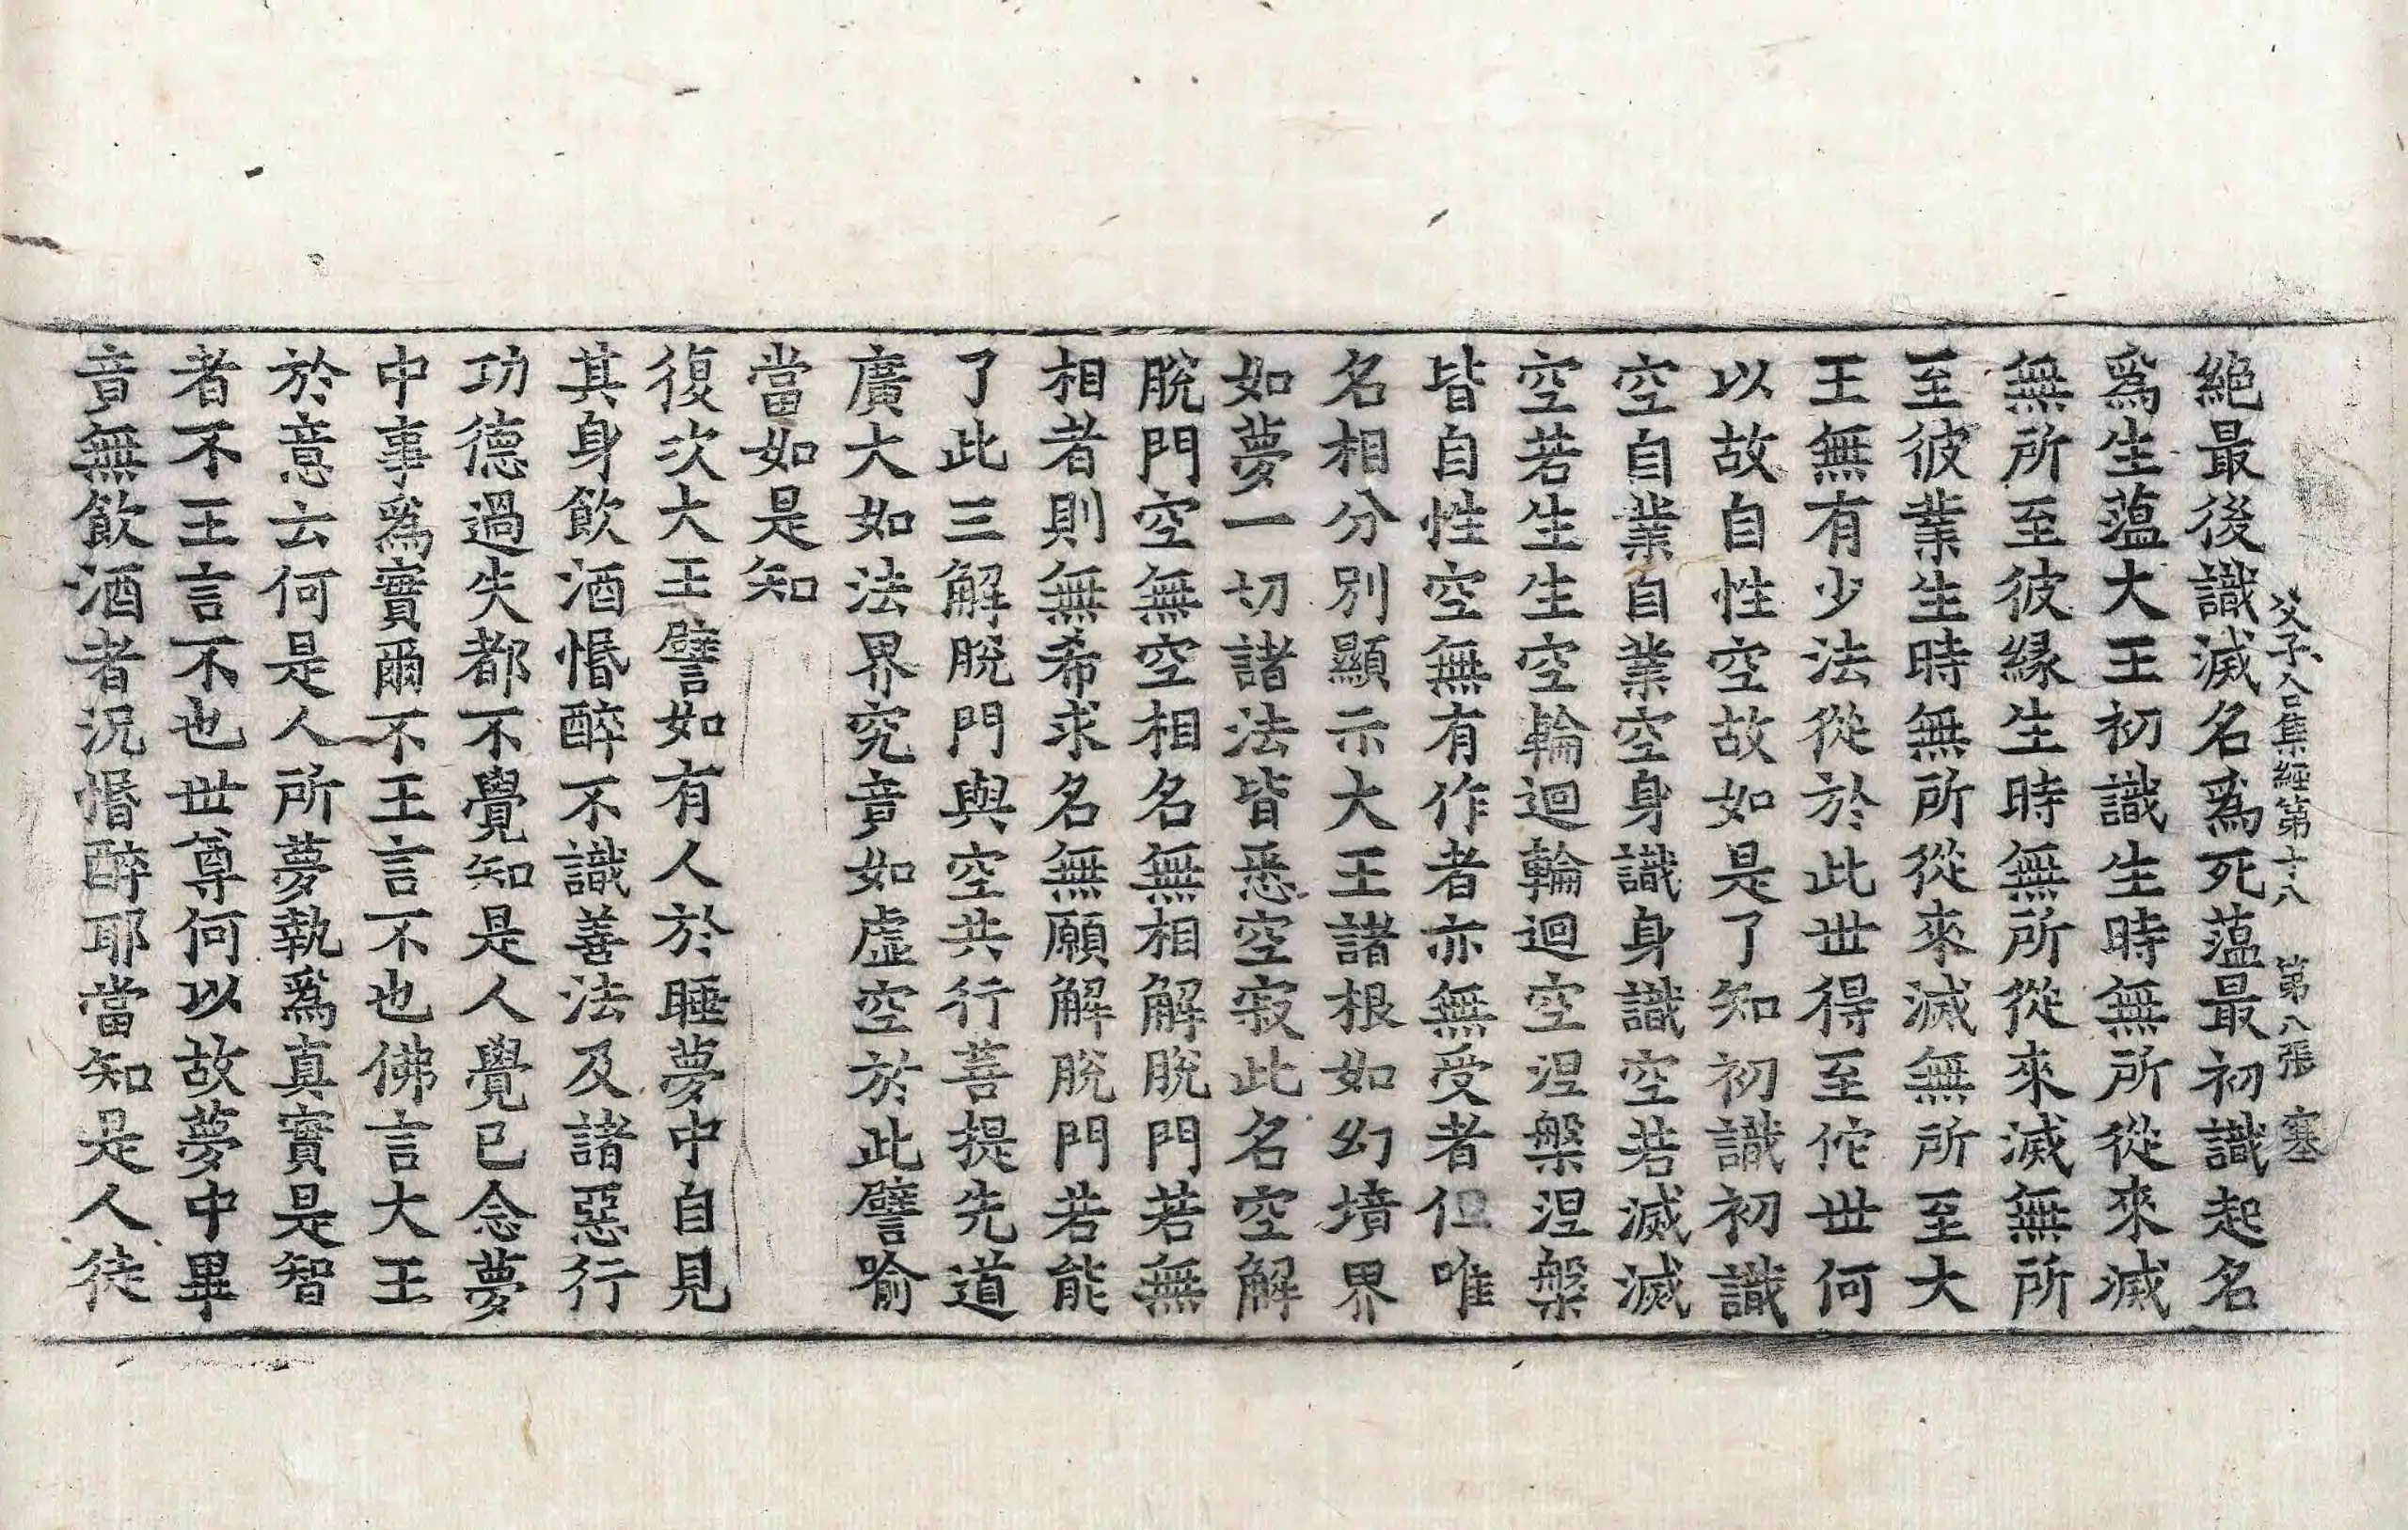 父子合集經第十八 第八張 塞
絕最後識滅名爲死蕰最初識起名
爲生蕰大王初識生時無所從來滅
無所至彼緣生時無所從來滅無所
至彼業生時無所從來滅無所至大
王無有少法從於此世得至佗世何
以故自性空故如是了知初識初識
空自業自業空身識身識空若滅滅
空若生生空輪迴輪迴空涅槃涅槃
皆自性空無有作者亦無受者但唯
名相分別顯示大王諸根如幻境界
如夢一切諸法皆悉空寂此名空解
脫門空無空相名無相解脫門若無
相者則無希求名無願解脫門若能
了此三解脫門與空共行菩提先道
廣大如法界究竟如虛空於此譬喻
當如是知
復次大王譬如有人於睡夢中自見
其身飮酒惛醉不識善法及諸惡行
功德過失都不覺知是人覺已念夢
中事爲實爾不王言不也佛言大王
於意云何是人所夢執爲真實是智
者不王言不也世尊何以故夢中畢
竟無飮酒者況惛醉耶當知是人徒